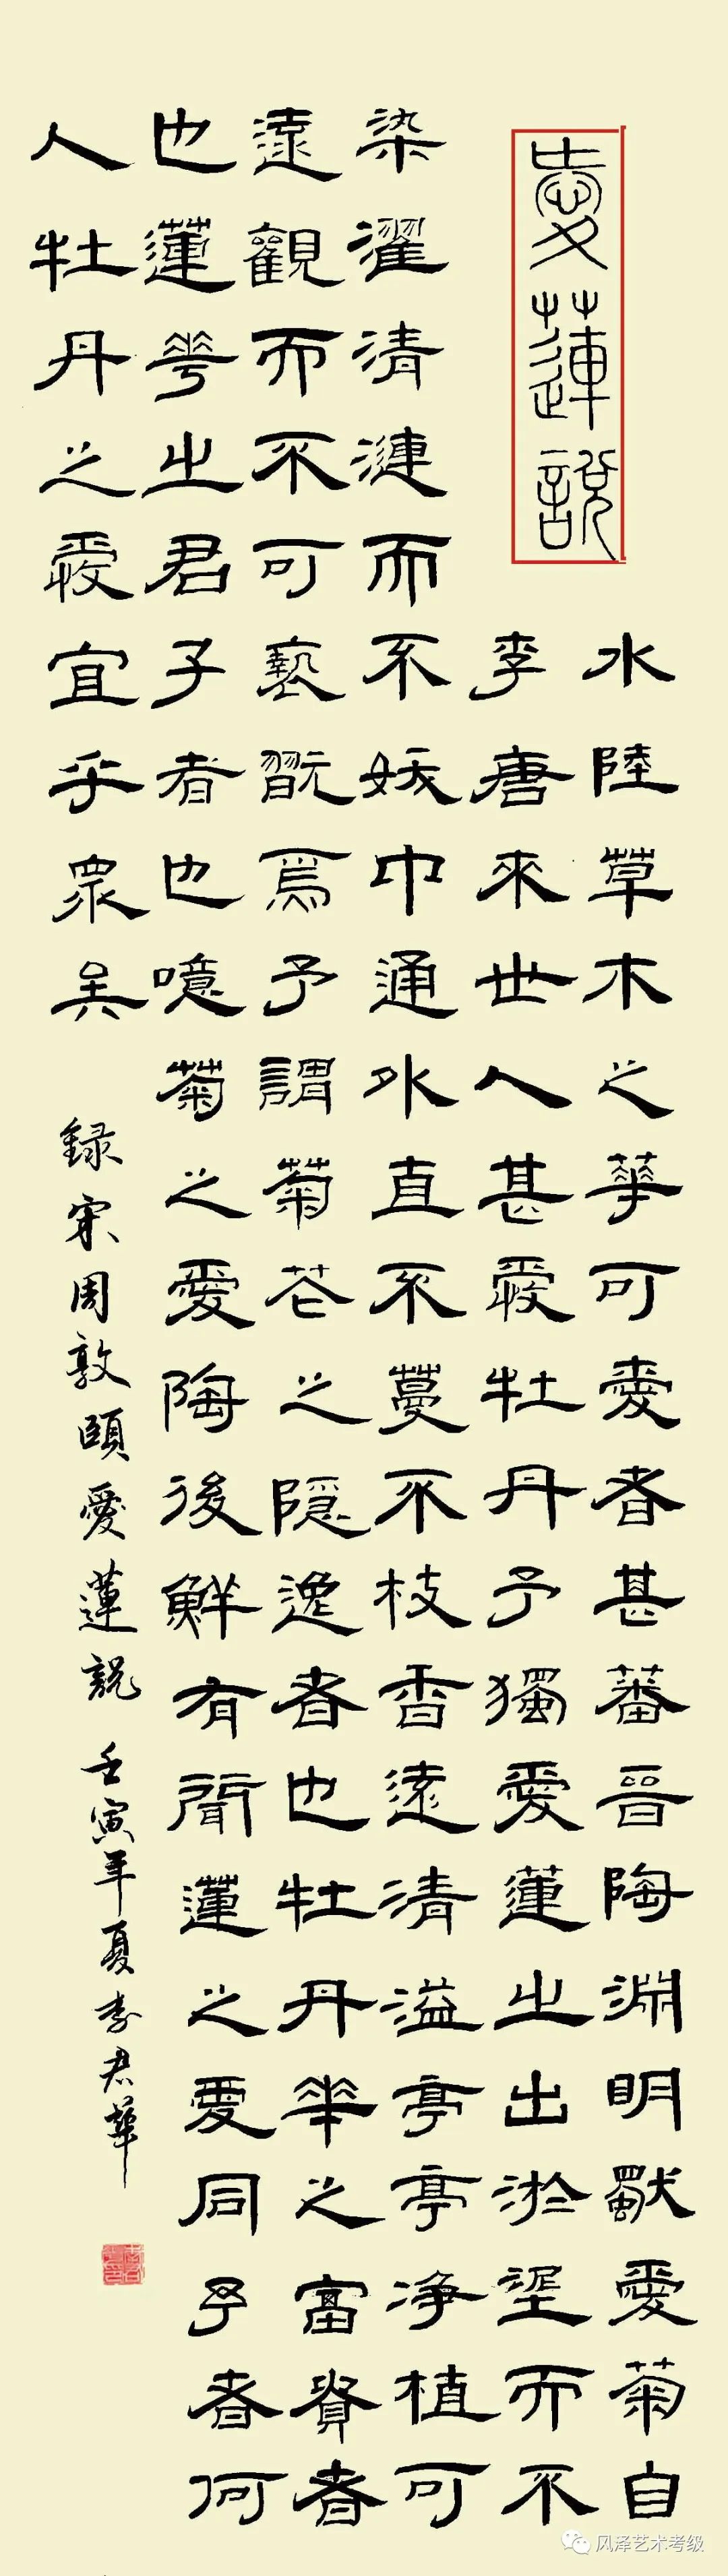 愛蓮說
水陸草木之華可愛者甚蕃晉陶淵明獨愛菊自
李唐來世人甚愛牡丹予獨愛蓮之出淤泥而不
染濯清漣而不妖中通外直不蔓不枝香遠清溢亭亭净植可
遠觀而不可褻翫焉予謂菊花之隱逸者也牡丹華之富貴者
也蓮華之君子者也噫菊之愛陶後鮮有聞蓮之愛同予者何
人牡丹之愛宜乎眾矣
録宋周敦頤愛蓮說 壬寅年夏李君華
风泽艺术考级